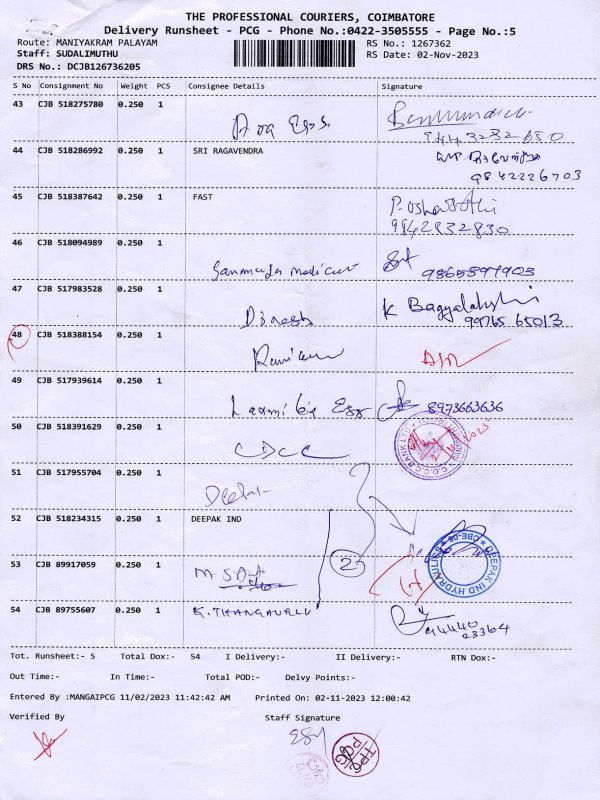 THE PROFESSIONAL COURIERS, COIMBATORE
Delivery Runsheet - PCG - Phone No.:0422-3505555 - Page No.:5
Route: MANIYAKRAM PALAYAM RS No.: 1267362
Staff: SUDALIMUTHU RS Date: 02-Nov-2023
DRS No.: DCJB126736205
S No Consignment No Weight PCS Consignee Details Signature
43 CJB 518275780 0.250 1
44 CJB 518286992 0.250 1 SRI RAGAVENDRA
9842226703
45 CJB 518387642 0.250 1 FAST
9842832830
46 CJB 518094989 0.250 1
9865897903
47 CJB 517983528 0.250 1 Dinesh K Bagyalakshi
99765 65013
48 CJB 518388154 0.250 1
49 CJB 517939614 0.250 1 8973663636
50 CJB 518391629 0.250 1 CDCC
51 CJB 517955704 0.250 1
52 CJB 518234315 0.250 1 DEEPAK IND
2
DEEPAK IND HYDRAULICS * CBE-06 *
53 CJB 89917059 0.250 1
54 CJB 89755607 0.250 1 K. THANGAVELU
94440
23364
Tot. Runsheet:- 5 Total Dox:- 54 I Delivery:- II Delivery:- RTN Dox:-
Out Time:- In Time:- Total POD:- Delvy Points:-
Entered By :MANGAIPCG 11/02/2023 11:42:42 AM Printed On: 02-11-2023 12:00:42
Verified By Staff Signature
TPC
PCG